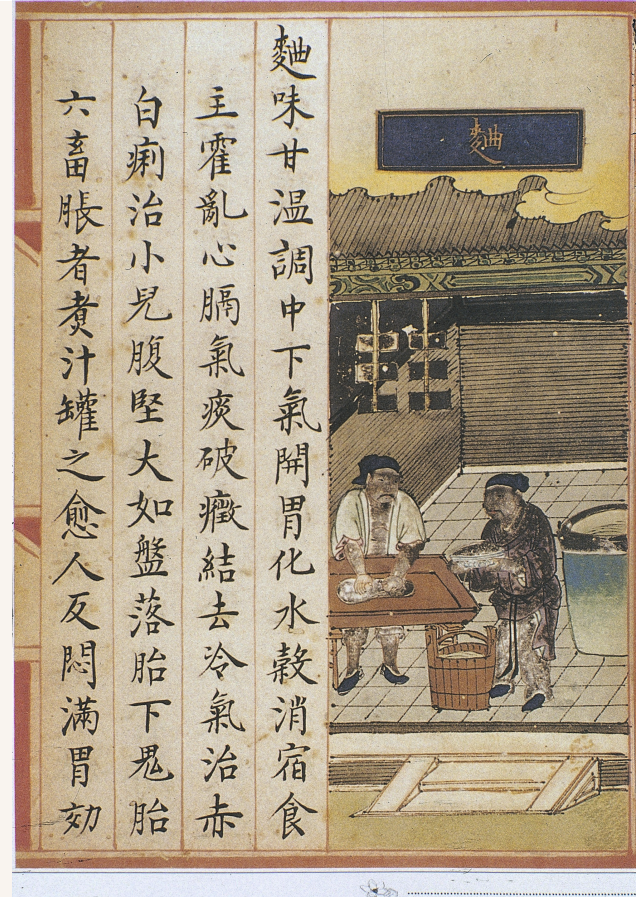 麯
麯味甘温調中下氣開胃化水穀消宿食
主霍亂心膈氣痰破癥結去冷氣治赤
白痢治小兒腹堅大如盤落胎下鬼胎
六畜脹者煮汁罐之愈人反悶滿胃効